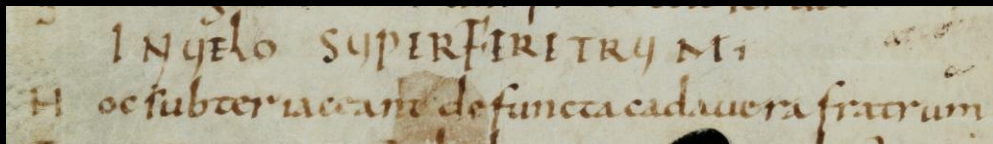 IN VELO SVPER FERETRVM
Hoc subter iaceant defuncta cadauera fratrum